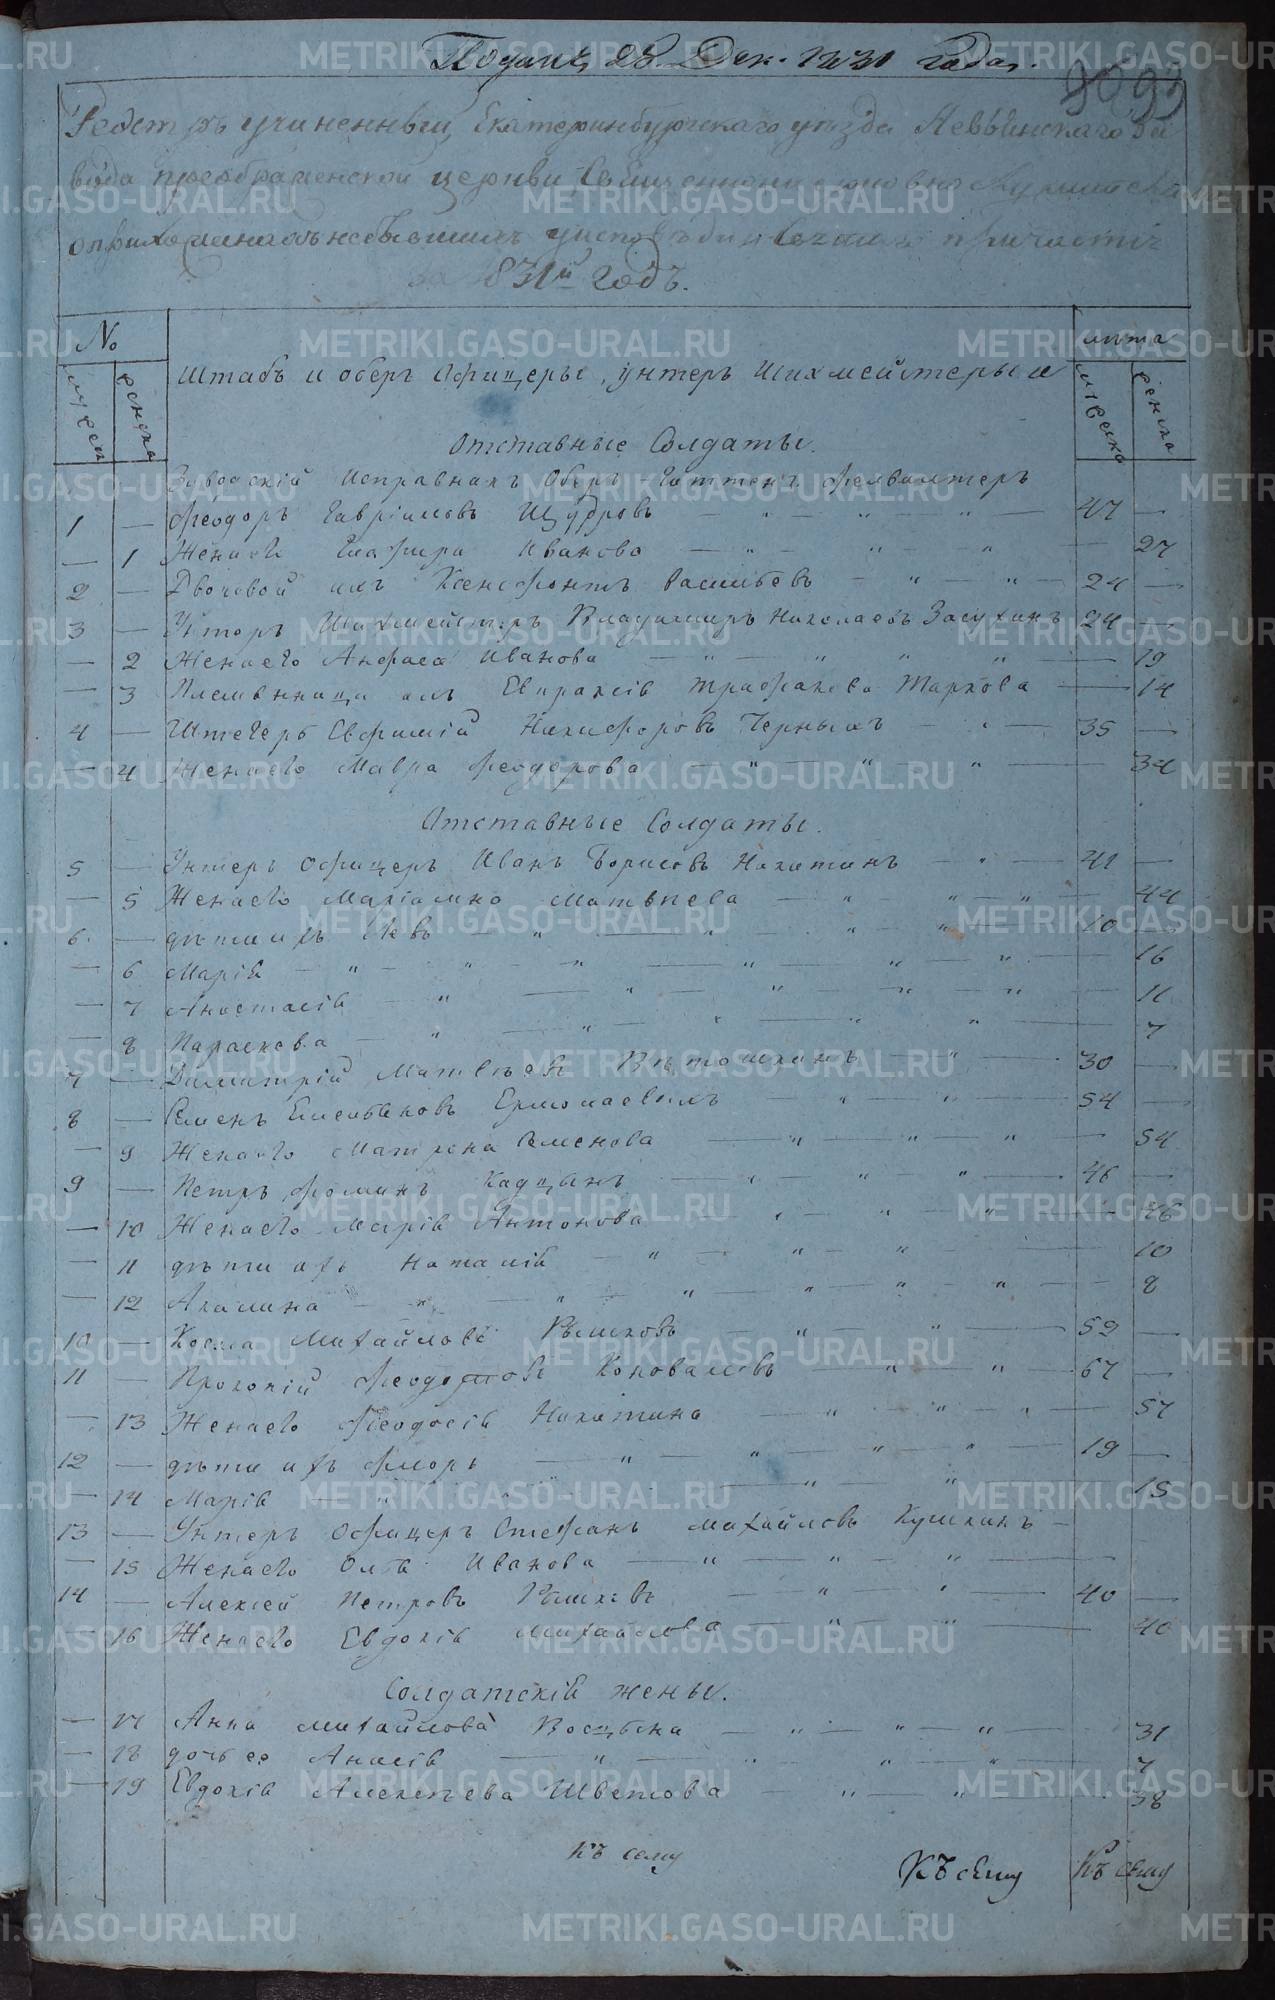 Поданъ 28. Дек. 1831 года.
93
Реестръ учиненный Екатеринбургскаго уѣзда Невьянскаго за
вода преображенской церкви Священно
о прихожанахъ небывшихъ уисповѣди и святаго причастія
за 1831й годъ.
№ лѣта
мужеска женска Штабъ и оберъ офицеры, унтеръ Шихмейстеры и мужеска женска
Отставные Солдаты.
Заводскій Исправникъ Оберъ Гиттенъ фервалтеръ
1 — Феодоръ Гавріиловъ — " — " — " — 47 —
— 1 Жена его Глафира Иванова — " — " — " — 27
2 — Дворовой ихъ Ксенофонтъ Васильевъ — " — " — 24 —
3 — Унтеръ Шихмейстеръ Владимиръ Николаевъ Засухинъ 24 —
— 2 Жена его Анфиса Иванова — " — " — " — " — 19
— 3 Племянница ихъ Евпраксія Трифанова Таркова — 14
4 — Штегеръ Евфимій Никифоровъ Черныхъ — " — 35 —
— 4 Жена его Мавра Феодорова — " — " — " — 34
Отставные Солдаты.
5 — Унтеръ Офицеръ Иванъ Борисовъ Никитинъ — " — 41 —
— 5 Жена его Маріамна Матвѣева — " — " — " — 44
6 — дѣти ихъ Левъ — " — " — " — " — 10 —
— 6 Марія — " — " — " — " — " — 16
— 7 Анастасія — " — " — " — " — " — 11
— 8 Параскева — " — " — " — " — " — 7
7 — Димитрій Матвѣевъ — " — 30 —
8 — Семенъ Емельяновъ Ермолаевыхъ — " — " — 54 —
— 9 Жена его Матрена Семенова — " — " — " — 54
9 — Петръ Фоминъ Кадцынъ — " — " — " — 46 —
— 10 Жена его Марія Антонова — " — " — " — 46
— 11 дѣти ихъ Наталія — " — " — " — 10
— 12 Акилина — " — " — " — " — " — " — 8
10 — Косма Михайловъ — " — " — 59 —
11 — Прокопій Феодотовъ Коноваловъ — " — " — 67 —
— 13 Жена его Феодосія Никитина — " — " — " — 57
12 — дѣти ихъ Флоръ — " — " — " — " — 19 —
— 14 Марія — " — " — " — " — " — 15
13 — Унтеръ Офицеръ Стефанъ Михайловъ Кушкинъ —
— 15 Жена его Ольга Иванова — " — " — " —
14 — Алексей Петровъ — " — " — 40 —
— 16 Жена его Евдокія Михайлова — " — " — 40
Солдатскія жены.
— 17 Анна Михайлова — " — " — " — 31
— 18 дочь ее — " — " — " — " — 7
— 19 Евдокія Алексѣева Швецова — " — " — 38
Къ сему Къ сему Къ сему
METRIKI.GASO-URAL.RU